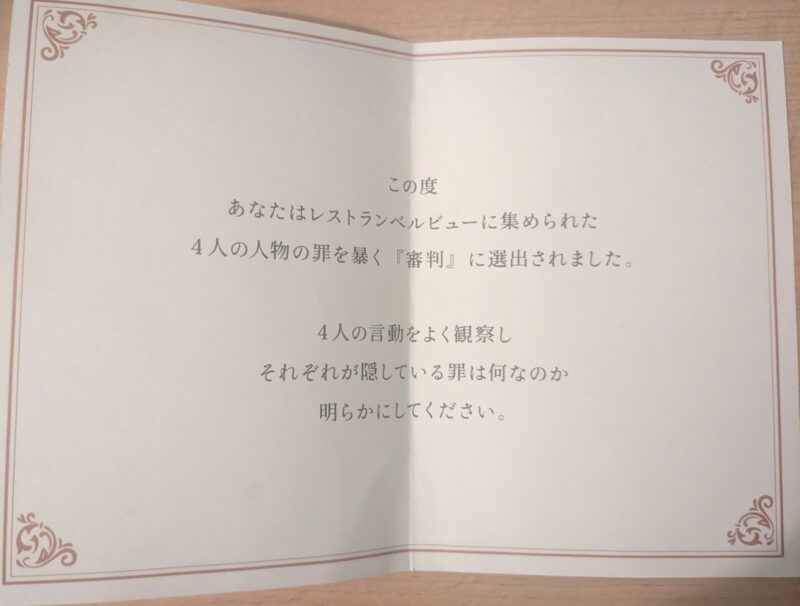 この度
あなたはレストランベルビューに集められた
4人の人物の罪を暴く『審判』に選出されました。
4人の言動をよく観察し
それぞれが隠している罪は何なのか
明らかにしてください。